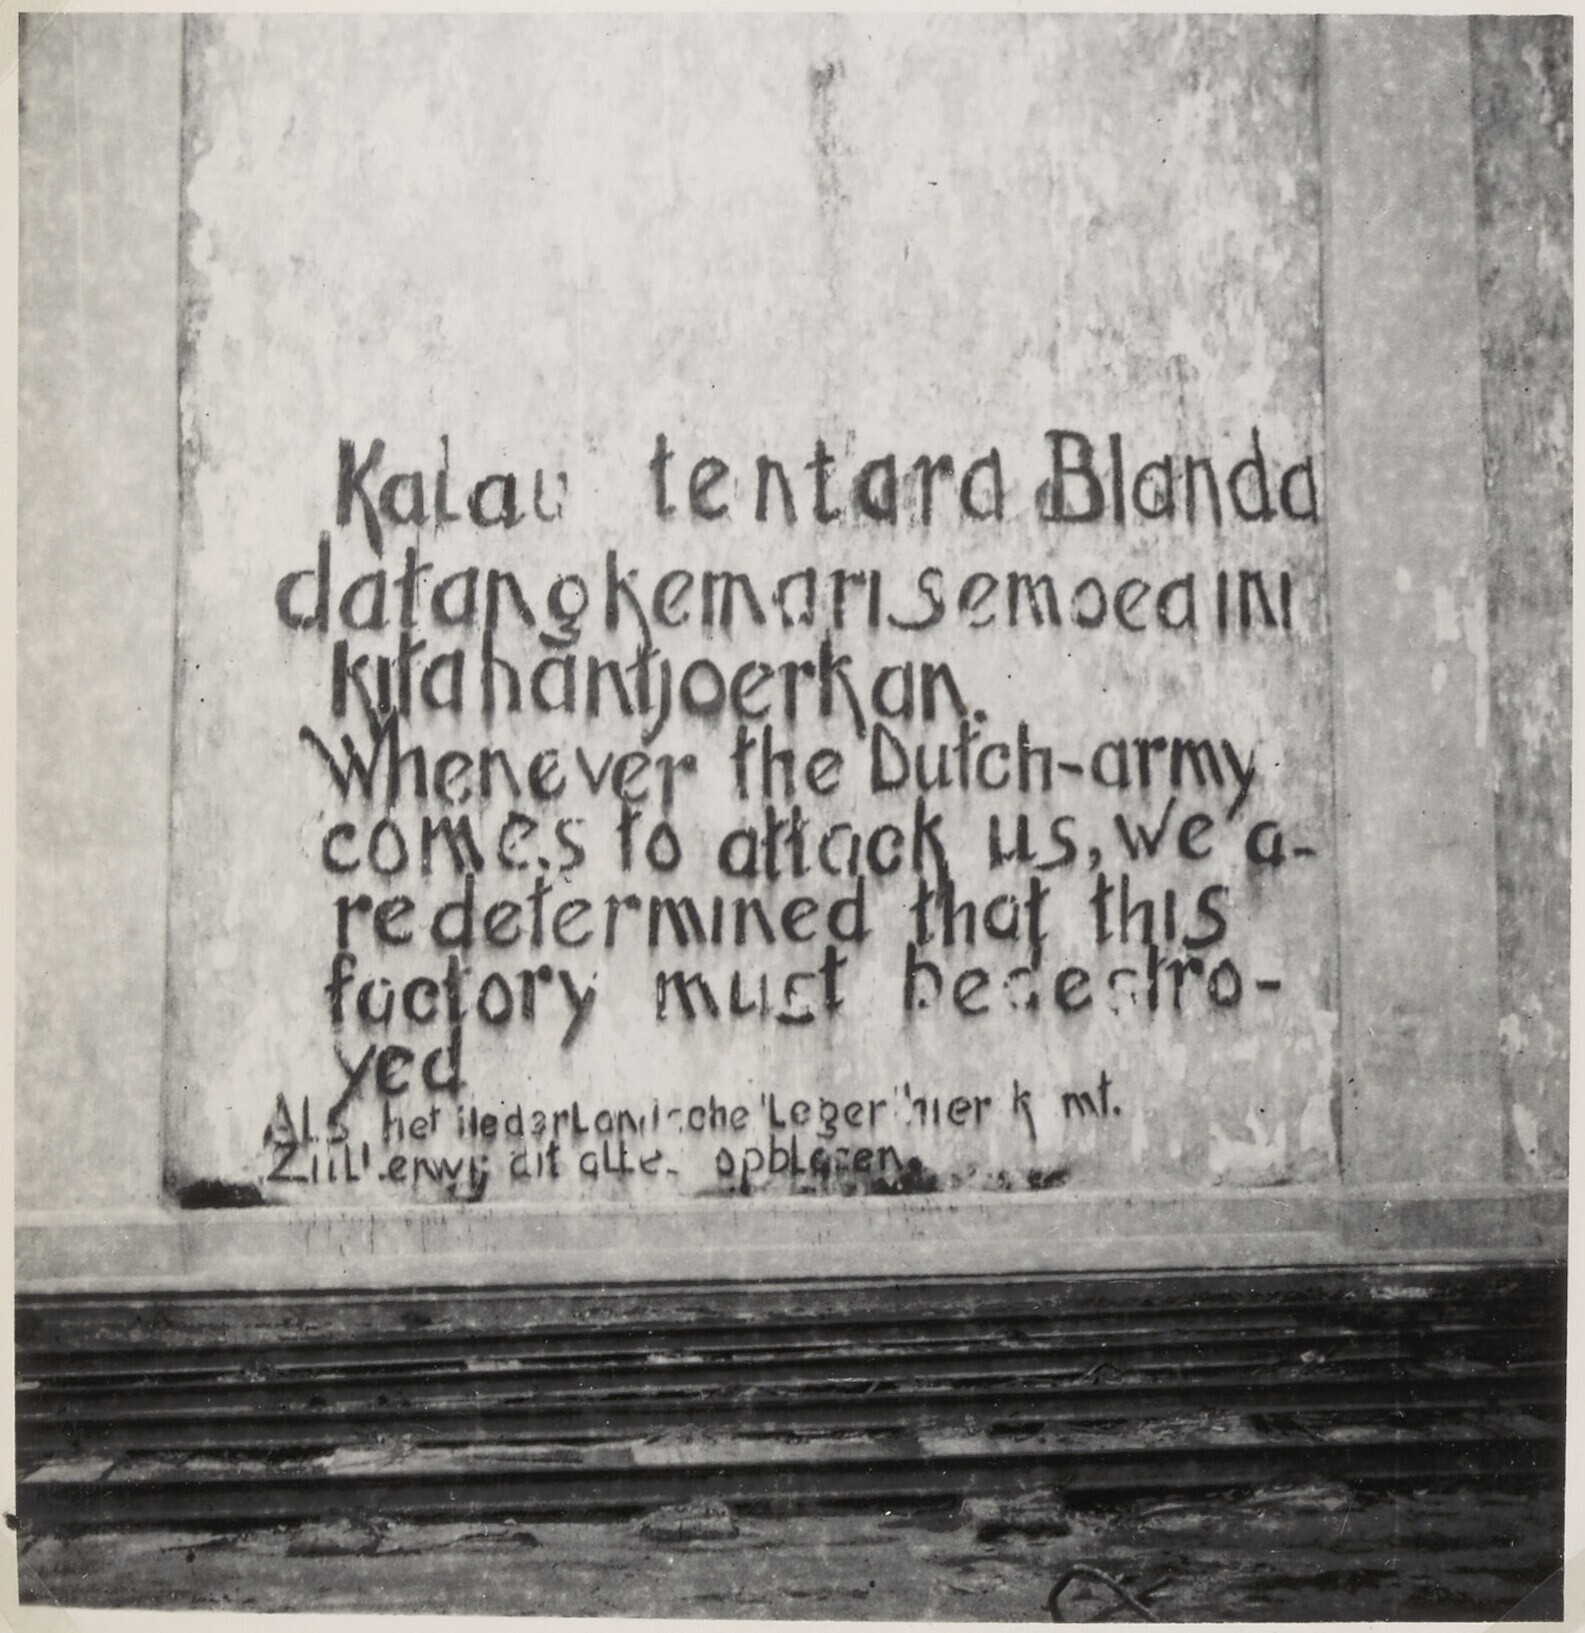 Kalau tentara Blanda
datang kemari semoea ini
kita hantjoerkan.
Whenever the Dutch-army
comes to attack us, we a-
re determined that this
factory must be destro-
yed
Als het Nederlandsche Leger hier komt.
Zullen wij dit alles opblazen.